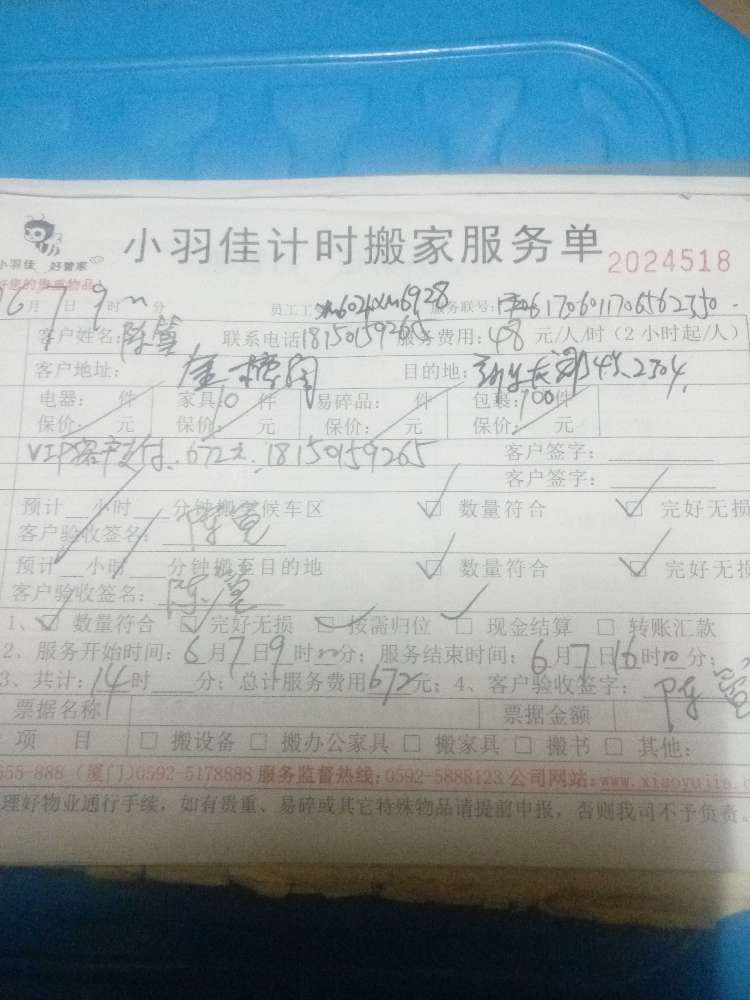 小羽佳计时搬家服务单 2024518
小羽佳 好管家
6月7日9时 分 员工工 服务联号:
客户姓名: 联系电话18150159265 服务费用:48元/人/时(2小时起/人)
客户地址: 目的地:
电器: 件 家具:10件 易碎品: 件 包裹:100件
保价: 元 保价: 元 保价: 元 保价: 元
VIP客户支付.672元.18150159265 客户签字:
客户签字:
预计 小时 分钟搬至候车区 ☑ 数量符合 ☑ 完好无损
客户验收签名:
预计 小时 分钟搬至目的地 ☑ 数量符合 ☑ 完好无损
客户验收签名:
1、☑ 数量符合 ☑ 完好无损 ☑ 按需归位 ☑ 现金结算 □ 转账汇款
2、服务开始时间:6月7日9时00分;服务结束时间:6月7日16时00分;
3、共计:14时 分;总计服务费用672元;4、客户验收签字:
票据名称 票据金额
项 目 □ 搬设备 □ 搬办公家具 □ 搬家具 □ 搬书 □ 其他:
555-888 (厦门)0592-5178888 服务监督热线:0592-5888123 公司网站:www.xiaoyujia.c
理好物业通行手续,如有贵重、易碎或其它特殊物品请提前申报,否则我司不予负责。